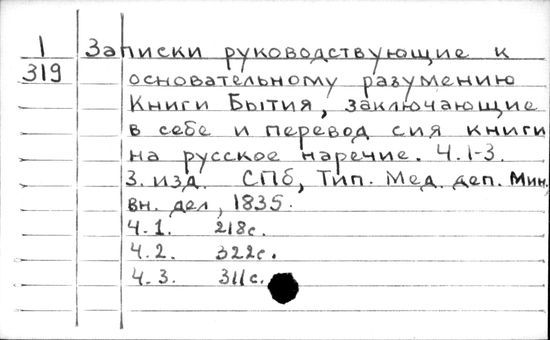 1
319
Записки руководствующие к
основательному разумению
Книги Бытия, заключающие
в себе и перевод сия книги
на русское наречие. Ч.1-3.
3. изд. СПб, Тип. Мед. деп. Мин.
вн. дел, 1835.
Ч.1. 218с.
Ч.2. 322с.
Ч.3. 311с.